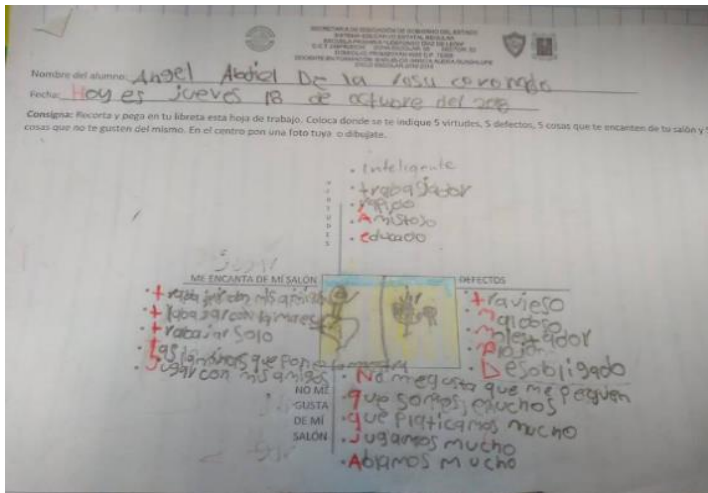 SECRETARIA DE EDUCACIÓN DE GOBIERNO DEL ESTADO
SISTEMA EDUCATIVO ESTATAL REGULAR
Nombre del alumno: Angel Abdiel De la rosa coronado
Fecha: Hoy es jueves 18 de octubre del 2018
Consigna: Recorta y pega en tu libreta esta hoja de trabajo. Coloca donde se te indique 5 virtudes, 5 defectos, 5 cosas que te encanten de tu salón y 5
cosas que no te gusten del mismo. En el centro pon una foto tuya o dibujate.
VIRTUDES
• Inteligente
• trabajador
• rapido
• Amistoso
• educado
ME ENCANTA DE MÍ SALÓN
• trabajar con mis amigos
• trabajar con la maestra
• trabajar Solo
• Las láminas que pone la maestra
• Jugar con mis amigos
DEFECTOS
• travieso
• Maldoso
• Molestador
• Peleón
• Desobligado
NO ME
GUSTA
DE MÍ
SALÓN
• No me gusta que me peguen
• que somos muchos
• que Platicamos mucho
• Jugamos mucho
• Ablamos mucho